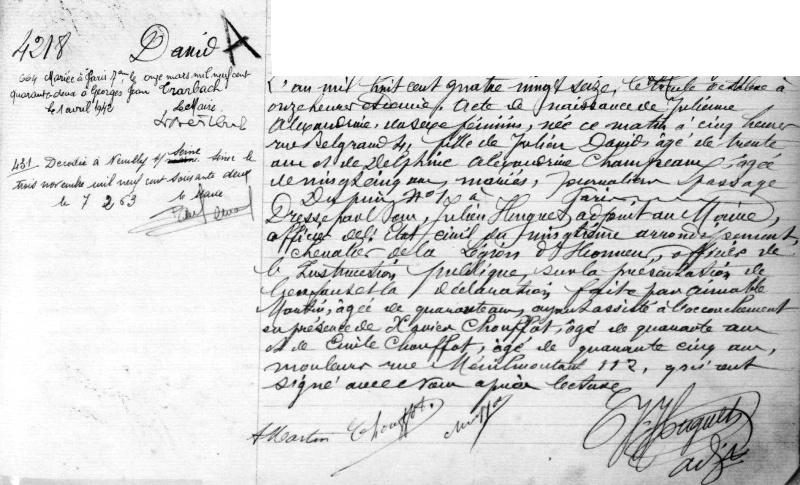 4218 David A
664 Mariée à Paris 7e le onze mars mil neuf cent
quarante deux à Georges Jean Trarbach
le 1 avril 1942 Le Maire
431 Décédée à Neuilly s/ Seine Seine le
trois novembre mil neuf cent soixante deux
le 7 2 63 le Maire
L'an mil huit cent quatre vingt seize, le trente octobre à
onze heures . Acte de naissance de Julienne
Alexandrine, du sexe féminin, née ce matin à cinq heures
rue Belgrand 4, fille de Julien David âgé de trente
ans et de Delphine Alexandrine Champeaux, âgée
de vingt cinq ans, mariés, journaliers passage
Du puits No 1 à Paris
Dressé par Nous, Julien Huguet, adjoint au Maire,
officier de l'Etat civil du vingtième arrondissement,
chevalier de la Légion d'Honneur, officier de
l'Instruction publique, sur la présentation de
l'enfant et la déclaration faite par Aimable
Martin, âgée de quarante ans, ayant assisté à l'accouchement
en présence de Xavier Chouffot, âgé de quarante ans
et de Emile Chouffot, âgé de quarante cinq ans,
mouleurs rue Ménilmontant 112, qui ont
signé avec Nous après lecture
A Martin Chouffot. Huguet
adjt